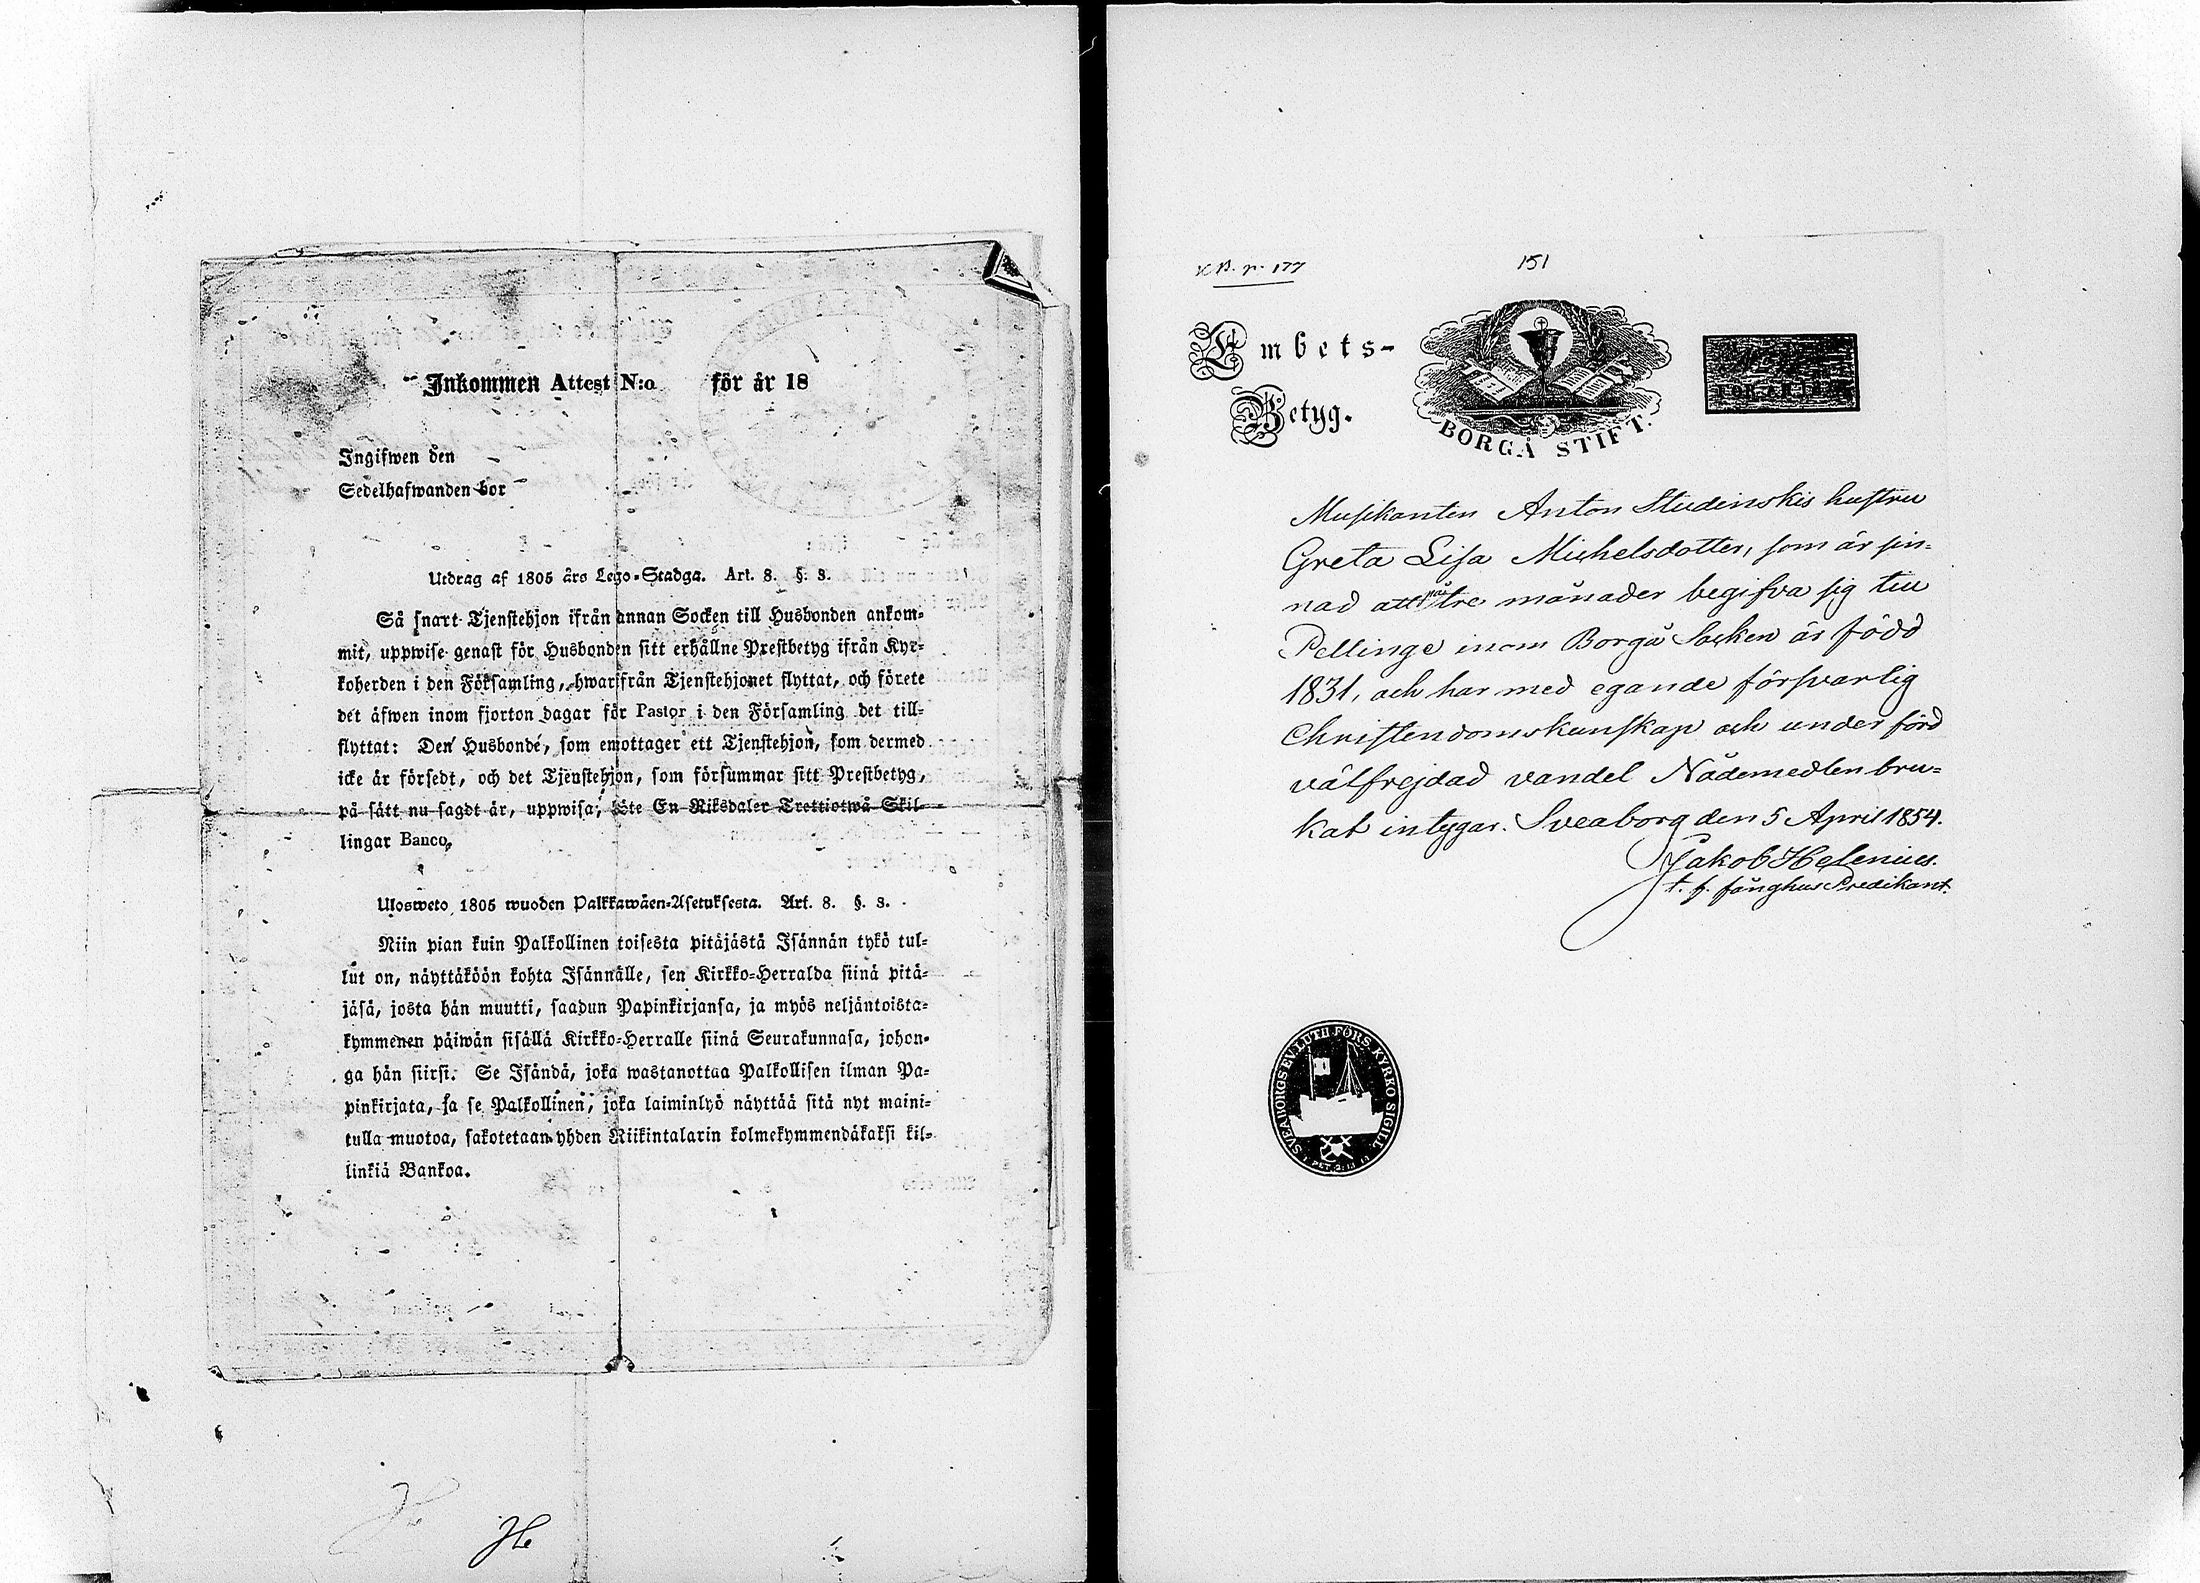 Inkommen Attest N:o för år 18
Ingifwen den
Sedelhafwanden bor
Utdrag af 1805 års Lego-Stadga. Art. 8. §. 8.
Så snart Tjenstehjon ifrån annan Socken till Husbonden ankom-
mit, uppwise genast för Husbonden sitt erhållne Prestbetyg ifrån Kyr-
koherden i den Församling, hwarifrån Tjenstehjonet flyttat, och förete
det äfwen inom fjorton dagar för Pastor i den Församling det till-
flyttat: Den Husbonde, som emottager ett Tjenstehjon, som dermed
icke är försedt, och det Tjenstehjon, som försummar sitt Prestbetyg,
på sätt nu sagdt är, uppwisa, böte En Riksdaler Trettiotwå Skil-
lingar Banco.
Ulosweto 1805 wuoden Palkkawäen-Asetuksesta. Art. 8. §. 8.
Niin pian kuin Palkollinen toisesta pitäjästä Isännän tykö tul-
lut on, näyttäköön kohta Isännälle, sen Kirkko-Herralda siinä pitä-
jäsä, josta hän muutti, saadun Papinkirjansa, ja myös neljäntoista-
kymmenen päiwän sisällä Kirkko-Herralle siinä Seurakunnasa, johon-
ga hän siirsi. Se Isändä, joka wastanottaa Palkollisen ilman Pa-
pinkirjata, ja se Palkollinen, joka laiminlyö näyttää sitä nyt maini-
tulla muotoa, sakotetaan yhden Riikintalarin kolmekymmendäkaksi kil-
linkiä Bankoa.
He
K.B. p. 177
151
Embets-
Betyg.
BORGÅ STIFT.
Musikanten Anton Studinskis hustru
Greta Lisa Michelsdotter, som är sin-
nad att på tre månader begifva sig till
Pellinge inom Borgå Socken är född
1831, och har med egande försvarlig
Christendomskunskap och under förd
välfrejdad vandel Nådemedlen bru-
kat intygar. Sveaborg den 5 April 1854.
Jakob Helenius.
t. f. fånghus Predikant.
SVEABORGS EV. LUTH. FÖRS. KYRKO SIGILL